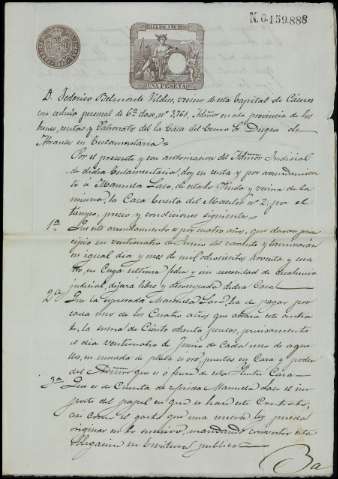 N. 0.159.888
UNA PESETA
D. Federico Belmonte Vildes, vecino de esta Capital de Cáceres
con cédula personal de 6ª clase, nº 3761, Admor en esta provincia de los
bienes, rentas y Patronatos de la Casa del Excmo. Sr. Duque de
Abrantes en Testamentaria
Por el presente y con autorizacion del Admor Judicial
de dicha Testamentaria, doy en renta y por arrendamien
to a Manuela Lazo, de estado Viuda y vecina de la
misma, la Casa Cuesta del Maestre nº 2, por el
tiempo, precio y condiciones siguientes
1ª Que este arrendamiento es por cuatro años, que daran prin
cipio en veinticuatro de Junio del corriente y terminarán
en igual dia y mes de mil ochocientos noventa y cua
tro, en cuya última fecha y sin necesidad de desahucio
judicial, dejará libre y desocupada dicha Casa
2ª Que la expresada Manuela Lazo ha de pagar por
cada uno de los Cuatro años que abraza este contra
to, la suma de Ciento ochenta pesetas, precisamente
el dia veinticuatro de Junio de cada uno de aque
llos, en moneda de plata u oro, puestas en Casa y poder
del Admor que es o fuere de esta Santa Casa
3ª Que es de Cuenta de dicha Manuela Lazo el im
porte del papel en que se hace este Contrato,
asi como el gasto que una nueva ley pueda
originar en lo sucesivo, mandando convertir esta
obligacion en Escritura publica